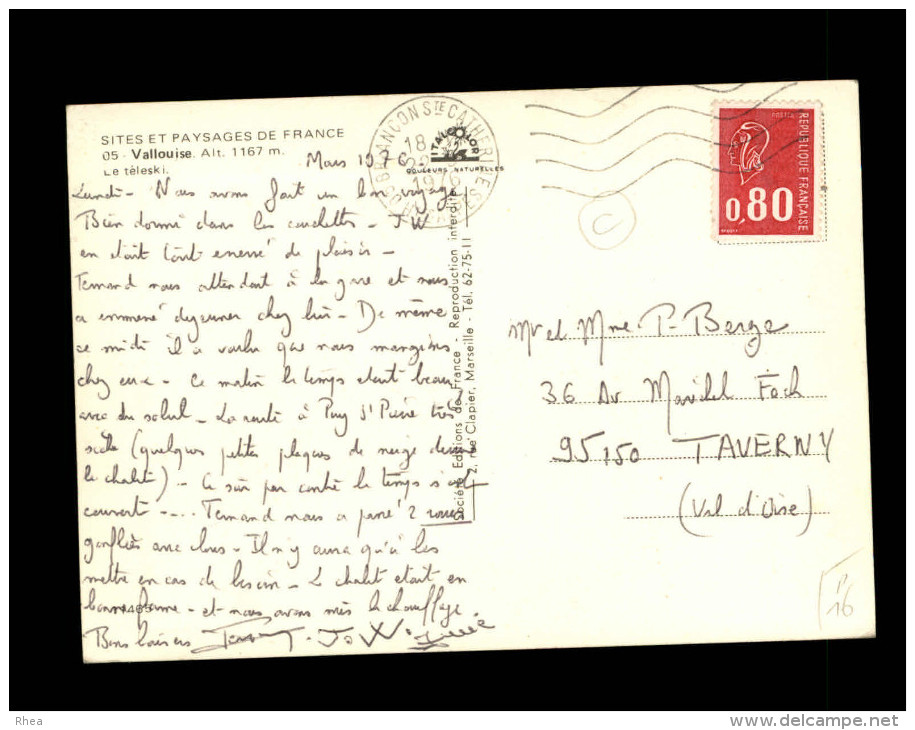 SITES ET PAYSAGES DE FRANCE
05 - Vallouise. Alt. 1167 m.
Le téleski.
Mars 1976
Lundi - Nous avons fait un bon voyage
Bien dormi dans les couchettes - JW
en était tout énervé de plaisir -
Fernand nous attendait à la gare et nous
a emmené déjeuner chez lui - De même
ce midi il a voulu que nous mangions
chez eux - Ce matin le temps était beau
avec du soleil - La route à Puy St Pierre très
sèche (quelques petites plaques de neige
le chalet) - Ce soir par contre le temps s'est
couvert - ... Fernand nous a 2 roues
gonflées avec clous - Il n'y aura qu'à les
mettre en cas de besoin - Le chalet était en
bonne forme - et nous avons mis le chauffage
Bons baisers
BRIANÇON STE CATHERINE
18
1976
ITALCOLOR
COULEURS NATURELLES
Société Editions de France - Reproduction interdite
2, rue Clapier, Marseille - Tél. 62-75-11
POSTES
REPUBLIQUE FRANÇAISE
0,80
C
Mr et Mme P. Berge
36 Av Maréchal Foch
95150 TAVERNY
(Val d'Oise)
16
Rhea
http://www.delcampe.net